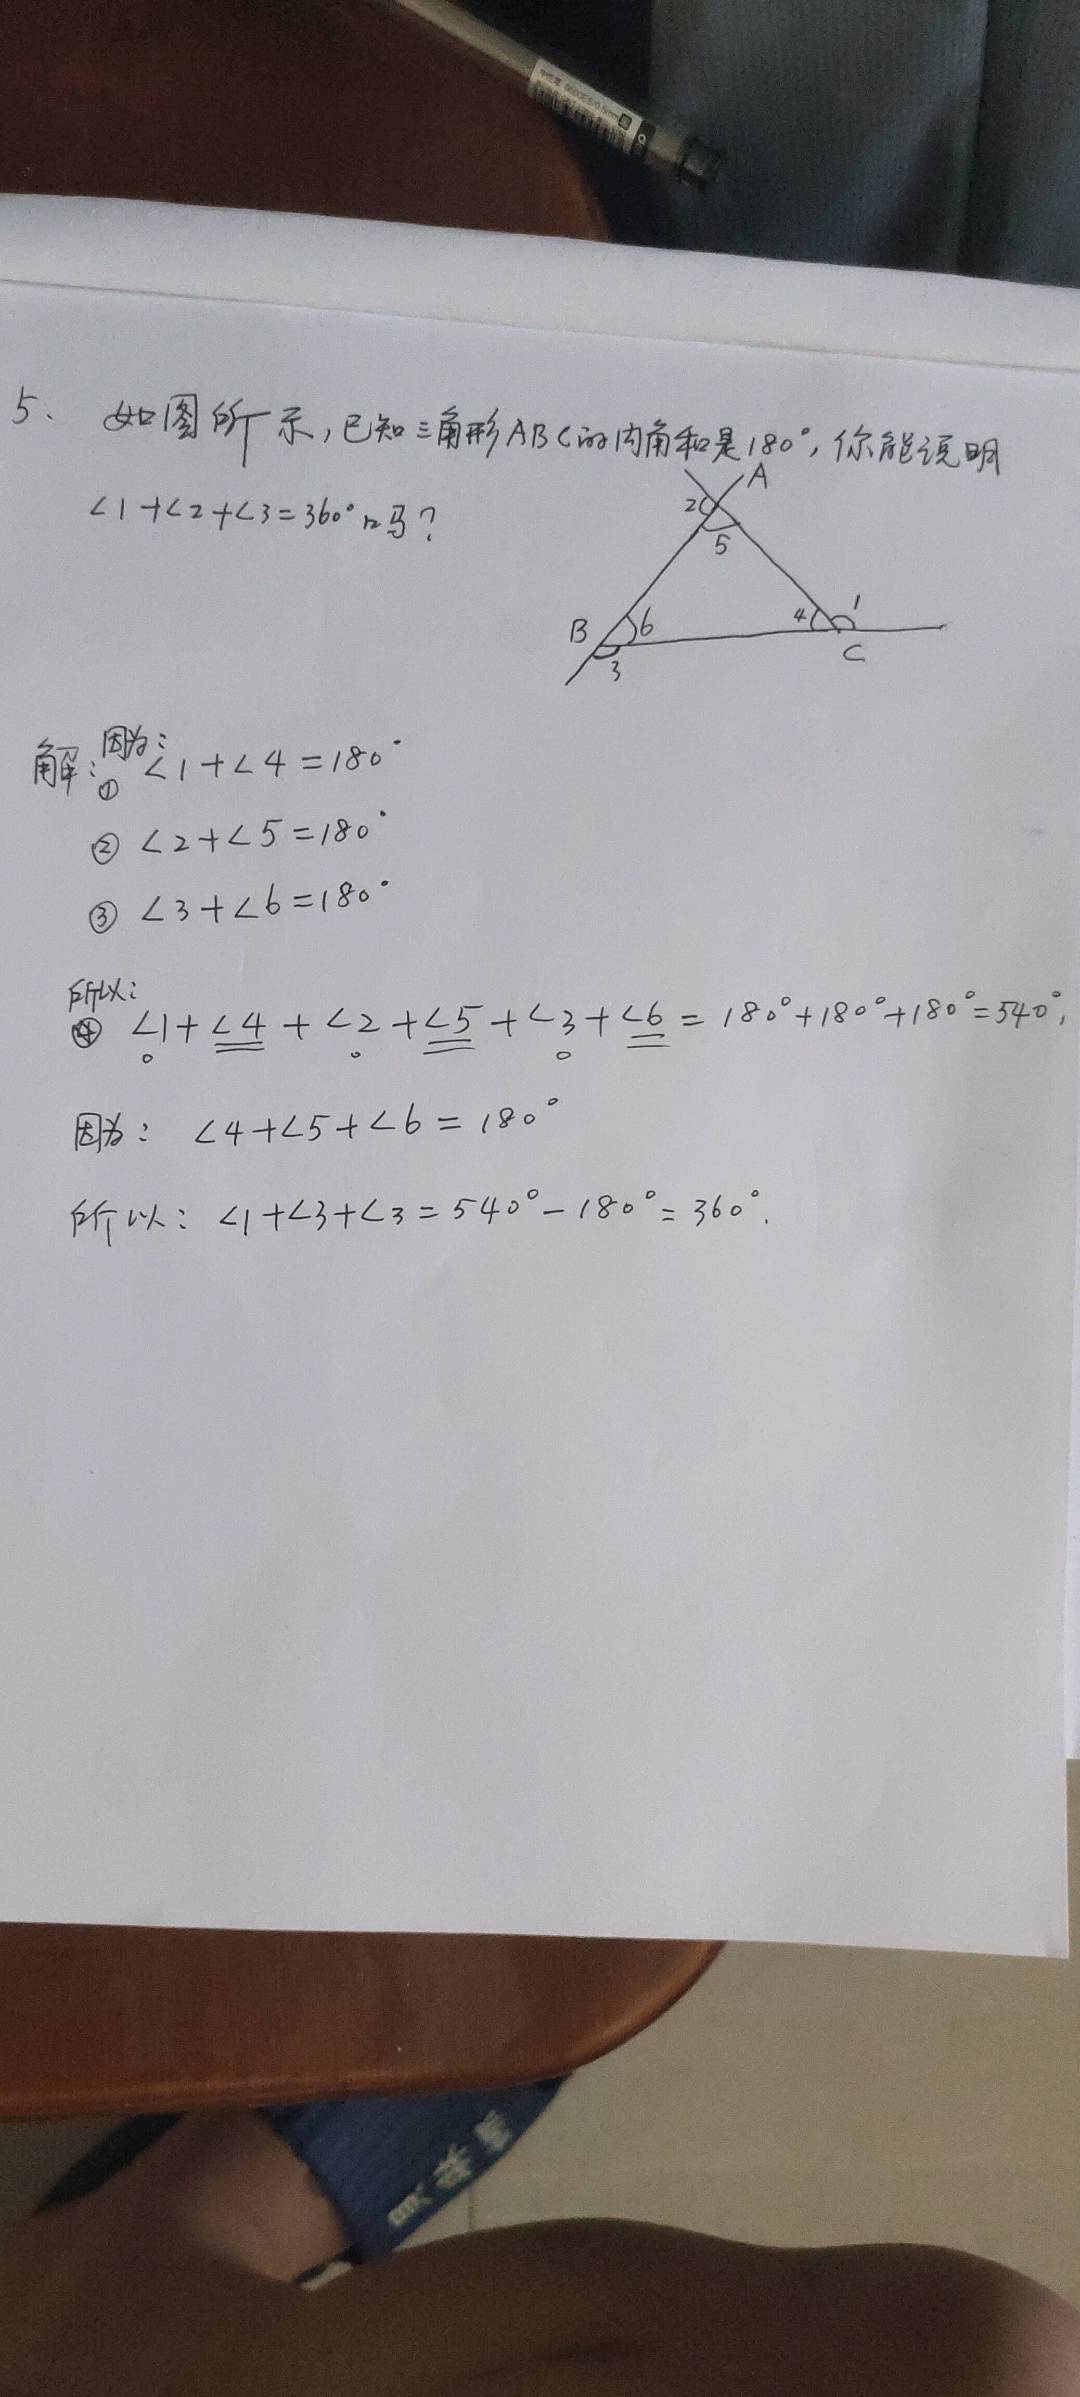 5、 如图所示,已知三角形ABC的内角和是180°,你能说明
∠1+∠2+∠3=360°吗?
A
2
5
B
6
4
1
3
C
解: 因为:
① ∠1+∠4=180°
② ∠2+∠5=180°
③ ∠3+∠6=180°
所以:
④ ∠1+∠4+∠2+∠5+∠3+∠6=180°+180°+180°=540°,
因为: ∠4+∠5+∠6=180°
所以: ∠1+∠3+∠3=540°-180°=360°.